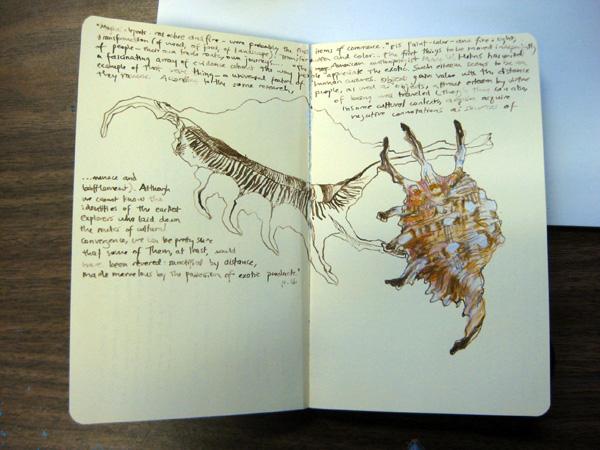 "Magic - objects - red ochre and fire - were probably the first
transformation (of world, of food, of landscape), transform
of people - their own trade routes, own journeys...
a fascinating array of evidence about the way people
example of this rare thing - a universal feature of
they revere. According to the same research,
...menace and
bafflement). Although
we cannot know the
identities of the earliest
explorers who laid down
the routes of cultural
convergence, we can be pretty sure
that some of them, at least, would
have been revered: sanctified by distance,
made marvelous by the possession of exotic products."
items of commerce. "P15 Paint - color - and fire: light,
and color... The first things to be moved
anthropologist Mary W. Helms has noted
appreciate the exotic. Such esteem seems to be an
human cultures. Objects gain value with the distance
people, as well as objects, attract esteem by virtue
of having traveled
in some cultural contexts, acquire
negative connotations as sources of